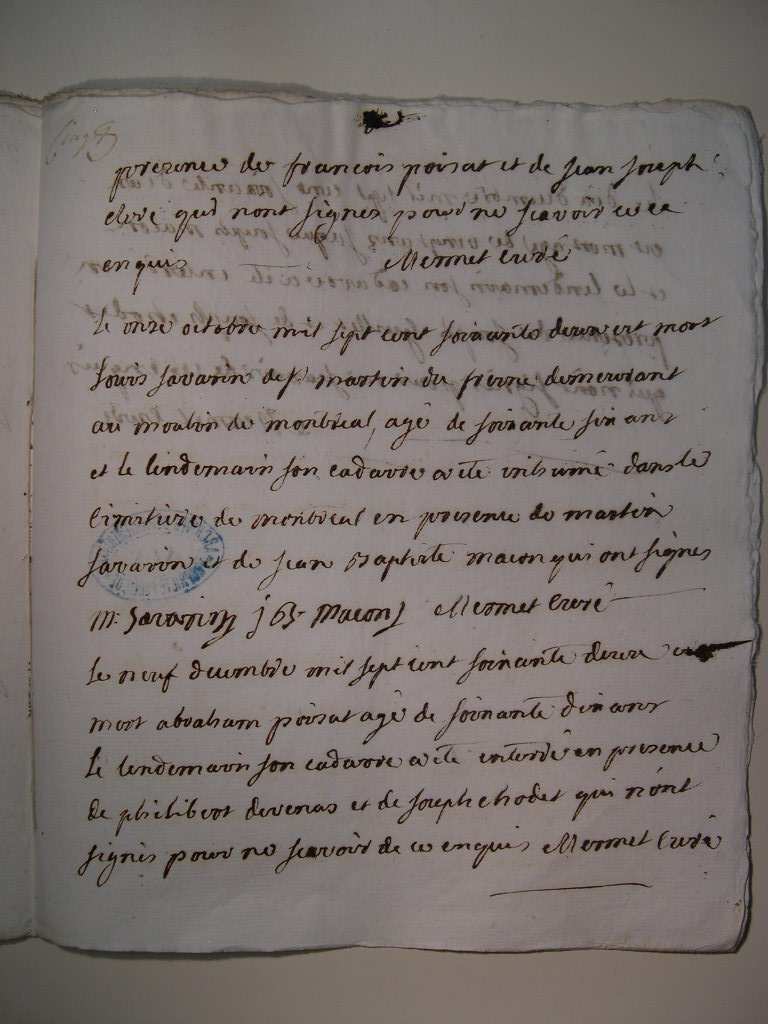 presence de francois poisat et de jean joseph
clerc qui nont signes pour ne scavoir ce ce
enquis Mermet Curé
Le onze octobre mil sept cent soixante deux est mort
Louis Savarin de St martin du frene demeurant
au moulin de montreal, agé de soixante six ans
et le lendemain son cadavre a été inhumé dans le
Cimitiere de montreal en presence de martin
Savarin et de jean Baptiste macon qui ont signés
M. Savarin j bt Macon Mermet Curé
Le neuf decembre mil sept cent soixante deux est
mort abraham poisat agé de soixante dix ans
Le lendemain son cadavre a été enterré en presence
de philibert devenas et de joseph chodet qui n'ont
signés pour ne scavoir de ce enquis Mermet Curé